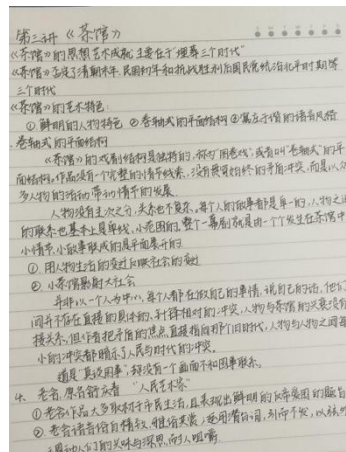 第三讲《茶馆》
《茶馆》的思想艺术成就主要在于"埋葬三个时代"
《茶馆》否定了清朝末年、民国初年和抗战胜利后国民党统治北平时期等
三个时代
《茶馆》的艺术特色:
①鲜明的人物特色 ②卷轴式的平面结构 ③寓庄于谐的语言风格
卷轴式的平面结构
《茶馆》的戏剧结构是独特的,称为"图卷戏",或者叫"卷轴式"的平
面结构。作品没有一个完整的情节线索,没有贯穿始终的矛盾冲突,而是以众
多人物的活动带动情节的发展。
人物没有主次之分,关系也不复杂,每个人的故事都是单一的,人物之间
的联系也基本上是单线、小范围的,整个一幕剧就是由一个个发生在茶馆中
小情节、小故事联成的是平面展开的
①用人物生活的变迁反映社会的变迁
②小茶馆影射大社会
并非以一个人为中心,每个人都在做自己的事情,说自己的话,他们
间并不存在直接的具体的、针锋相对的冲突,人物与茶馆的兴衰没有
接关系,但作者把矛盾的焦点直接指向那个旧时代,人物与人物之间每
小的冲突都暗示了人民与时代的冲突。
道是"真没图事",却没有一个画面不和国事联系。
4、老舍,原名舒庆春 "人民艺术家"
①老舍作品大多取材于市民生活,且表现出鲜明的反帝爱国的题旨
②老舍语言俗白精致,雅俗共赏;运用
人们的兴味与深思,耐人咀嚼